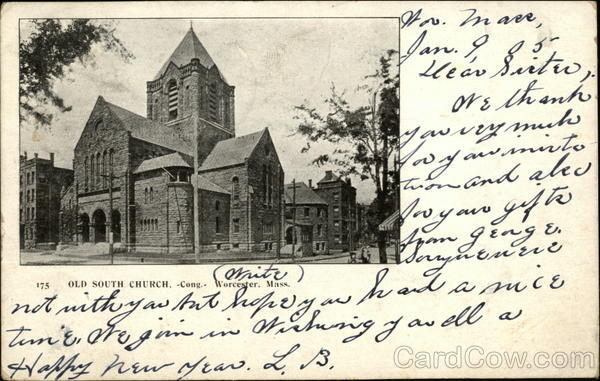 Wor. Mass,
Jan. 9, 05
Dear Sister,
We thank
you very much
for your invita
tion and also
for your gifts
from George.
Sorry we were
175 OLD SOUTH CHURCH, -Cong.- Worcester, Mass.
(Write)
not with you but hope you had a nice
time. We join in Wishing you all a
Happy New Year. L. B.
CardCow.com